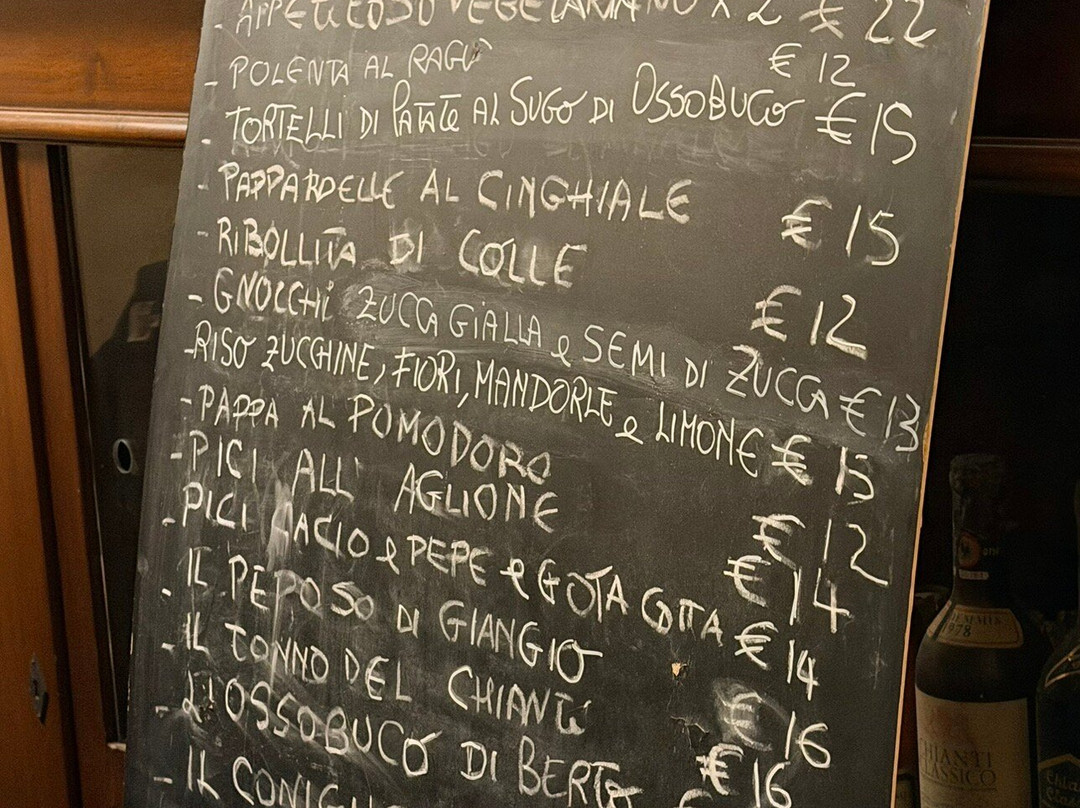 - APPETITOSO VEGETARIANO X 2 € 22
- POLENTA AL RAGÙ € 12
- TORTELLI DI PATATE AL SUGO DI OSSOBUCO € 15
- PAPPARDELLE AL CINGHIALE € 15
- RIBOLLITA DI COLLE € 12
- GNOCCHI ZUCCA GIALLA e SEMI DI ZUCCA € 13
- RISO ZUCCHINE, FIORI, MANDORLE e LIMONE € 15
- PAPPA AL POMODORO € 12
- PICI ALL AGLIONE € 14
- PICI CACIO e PEPE e GOTA GOTTA € 14
- IL PEPOSO DI GIANGIO € 16
- IL TONNO DEL CHIANTI € 16
- L'OSSOBUCO DI
- IL
1978
CHIANTI
CLASSICO